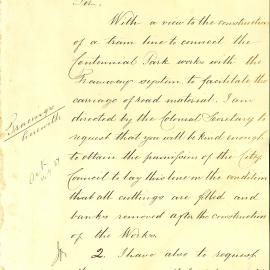 Sir,
With a view to the construction
of a tram line to connect the
Centennial Park works with the
Tramway system to facilitate the
carriage of road material. I am
directed by the Colonial Secretary to
request that you will be kind enough
to obtain the permission of the City
Council to lay this line on the condition
that all cuttings are filled and
banks removed after the construction
of the Works.
2. I have also to request
herewith